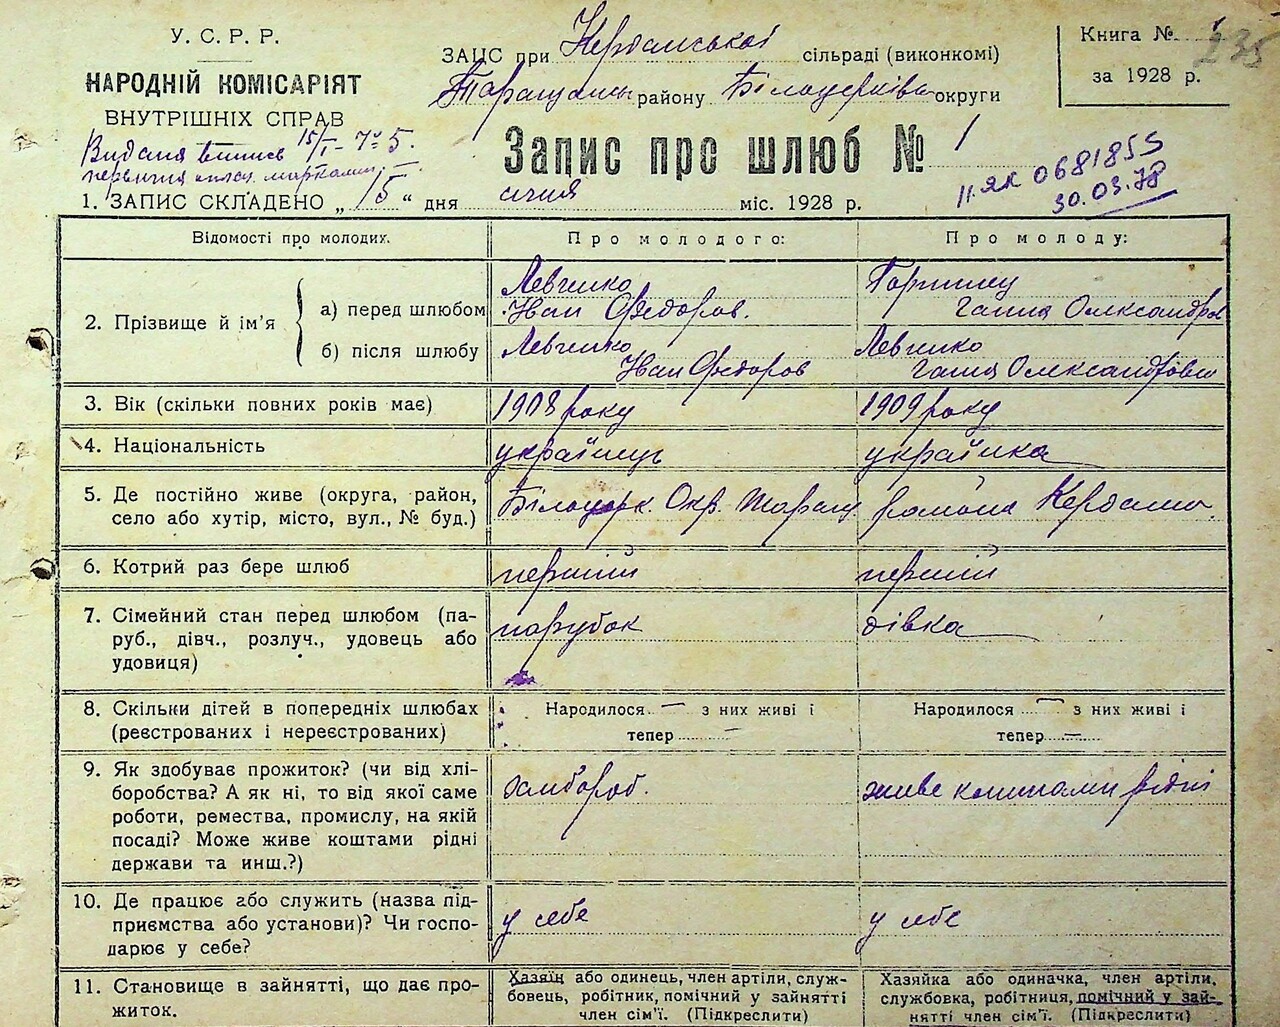 У. С. Р. Р.
НАРОДНІЙ КОМІСАРІЯТ
ВНУТРІШНІХ СПРАВ
Видана випись 15/I – 7 5.
ЗАЦС при Керданської сільраді (виконкомі)
Таращанськ району Білоцерківськ округи
Книга №
235
за 1928 р.
Запис про шлюб № 1
II-ЯК 0681855
30.03.78
1. ЗАПИС СКЛАДЕНО „15“ дня січня міс. 1928 р.
Відомості про молодих. Про молодого: Про молоду:
2. Прізвище й ім'я
а) перед шлюбом Левченко
Іван Федоров. Ганна Олександров
б) після шлюбу Левченко Левченко
Іван Федоров Ганна Олександрівна
3. Вік (скільки повних років має) 1908 року 1909 року
4. Національність українець українка
5. Де постійно живе (округа, район, Білоцерк. Окр. Таращ района
село або хутір, місто, вул., № буд.)
6. Котрий раз бере шлюб перший перший
7. Сімейний стан перед шлюбом (па- парубок дівка
руб., дівч., розлуч., удовець або
удовиця)
8. Скільки дітей в попередніх шлюбах Народилося — з них живі і Народилося — з них живі і
(реєстрованих і нереєстрованих) тепер — тепер —
9. Як здобуває прожиток? (чи від хлі- хлібороб. живе коштами рідні
боробства? А як ні, то від якої саме
роботи, ремества, промислу, на якій
посаді? Може живе коштами рідні
держави та инш.?)
10. Де працює або служить (назва під- у себе у себе
приємства або установи)? Чи госпо-
дарює у себе?
11. Становище в зайнятті, що дає про- Хазяїн або одинець, член артіли, служ- Хазяйка або одиначка, член артіли,
житок. бовець, робітник, помічний у зайнятті службовка, робітниця, помічний у зай-
член сім'ї. (Підкреслити) нятті член сім'ї. (Підкреслити)